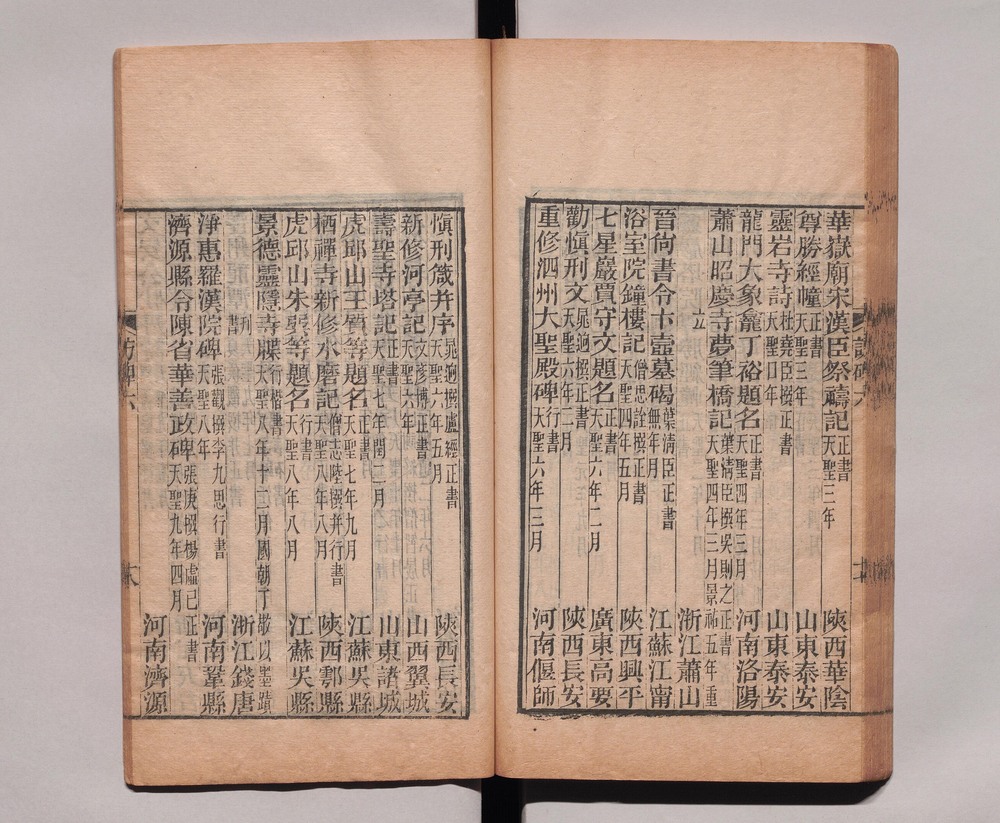 華嶽廟宋漢臣祭禱記 正書 天聖三年 陝西華陰
尊勝經幢 正書 天聖三年 山東泰安
靈岩寺詩 杜堯臣撰正書 天聖口年 山東泰安
龍門大象龕丁裕題名 正書 天聖四年三月 河南洛陽
蕭山昭慶寺夢筆橋記 葉淸臣撰吳則之正書 天聖四年三月景祐五年重
立 浙江蕭山
晉尙書令卞壼墓碣 葉淸臣正書 無年月 江蘇江甯
浴室院鐘樓記 僧思詮撰正書 天聖四年五月 陝西興平
七星巖賈守文題名 正書 天聖六年二月 廣東高要
勸愼刑文 晁迥撰正書 天聖六年二月 陝西長安
重修泗州大聖殿碑 行書 天聖六年三月 河南偃師
愼刑箴并序 晁迥撰盧經正書 天聖六年五月 陝西長安
新修河亭記 文彥博正書 天聖六年 山西翼城
壽聖寺塔記 正書 天聖七年閏二月 山東諸城
虎邱山王質等題名 正書 天聖七年九月 江蘇吳縣
栖禪寺新修水磨記 僧志陸撰并行書 天聖八年八月 陝西鄠縣
虎邱山朱巽等題名 行書 天聖八年八月 江蘇吳縣
景德靈隱寺牒 行楷書 天聖八年十二月國朝丁敬以聖蹟
刊書 浙江錢唐
淨惠羅漢院碑 張觀撰李九思行書 天聖八年 河南鞏縣
濟源縣令陳省華善政碑 張庚撰楊虛己正書 天聖九年四月 河南濟源